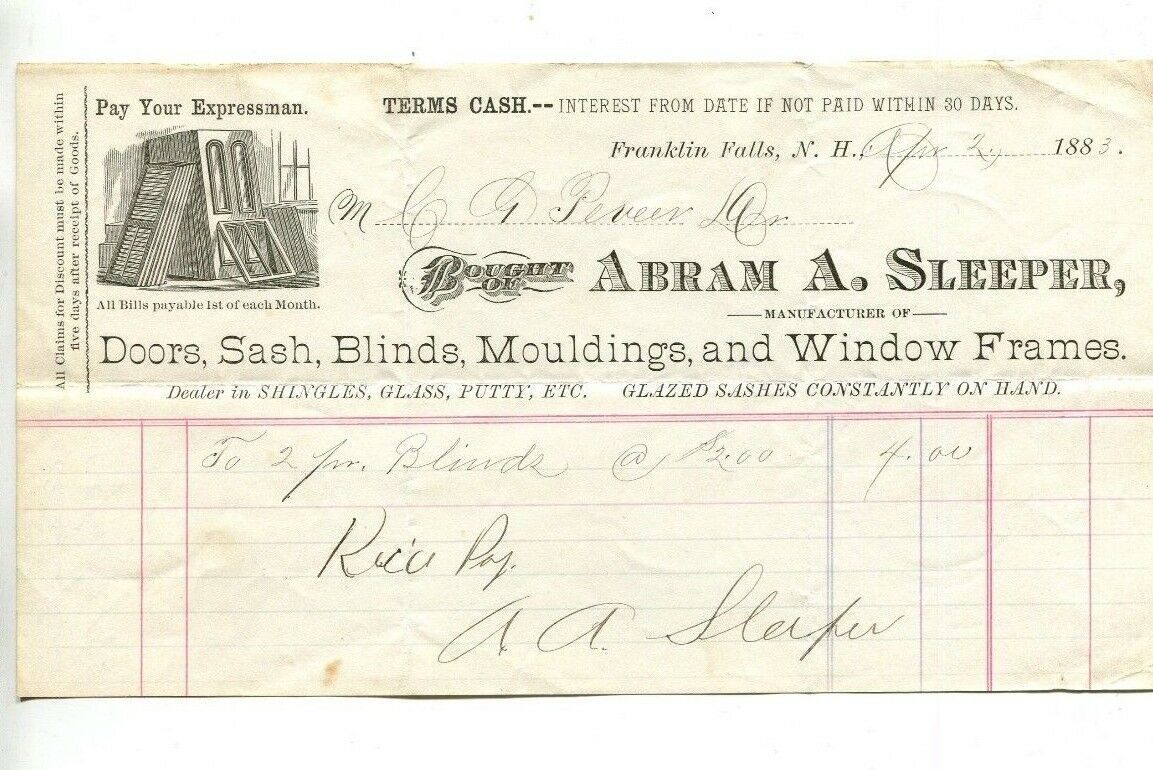 All Claims for Discount must be made within
five days after receipt of Goods.
Pay Your Expressman.
All Bills payable 1st of each Month.
TERMS CASH.--INTEREST FROM DATE IF NOT PAID WITHIN 30 DAYS.
Franklin Falls, N. H., Apr 2, 1883.
M C A Dr
BOUGHT OF ABRAM A. SLEEPER,
MANUFACTURER OF
Doors, Sash, Blinds, Mouldings, and Window Frames.
Dealer in SHINGLES, GLASS, PUTTY, ETC. GLAZED SASHES CONSTANTLY ON HAND.
To 2 pr. Blinds @ $2.00 4.00
Pay.
A A Sleeper